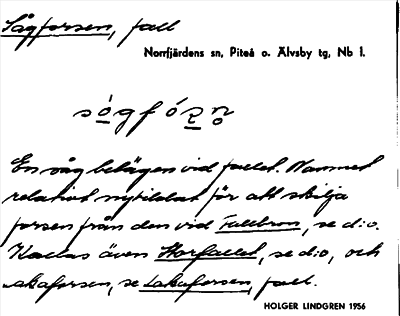 Sågforsen, fall
Norrfjärdens sn, Piteå o. Älvsby tg, Nb l.
sógfórn
En såg belägen vid fallet. Namnet
relativt nybildat för att skilja
forsen från den vid Fallbron, se d:o.
Kallas även Storfallet, se d:o, och
Lakaforsen, se Lakaforsen, fall.
HOLGER LINDGREN 1956